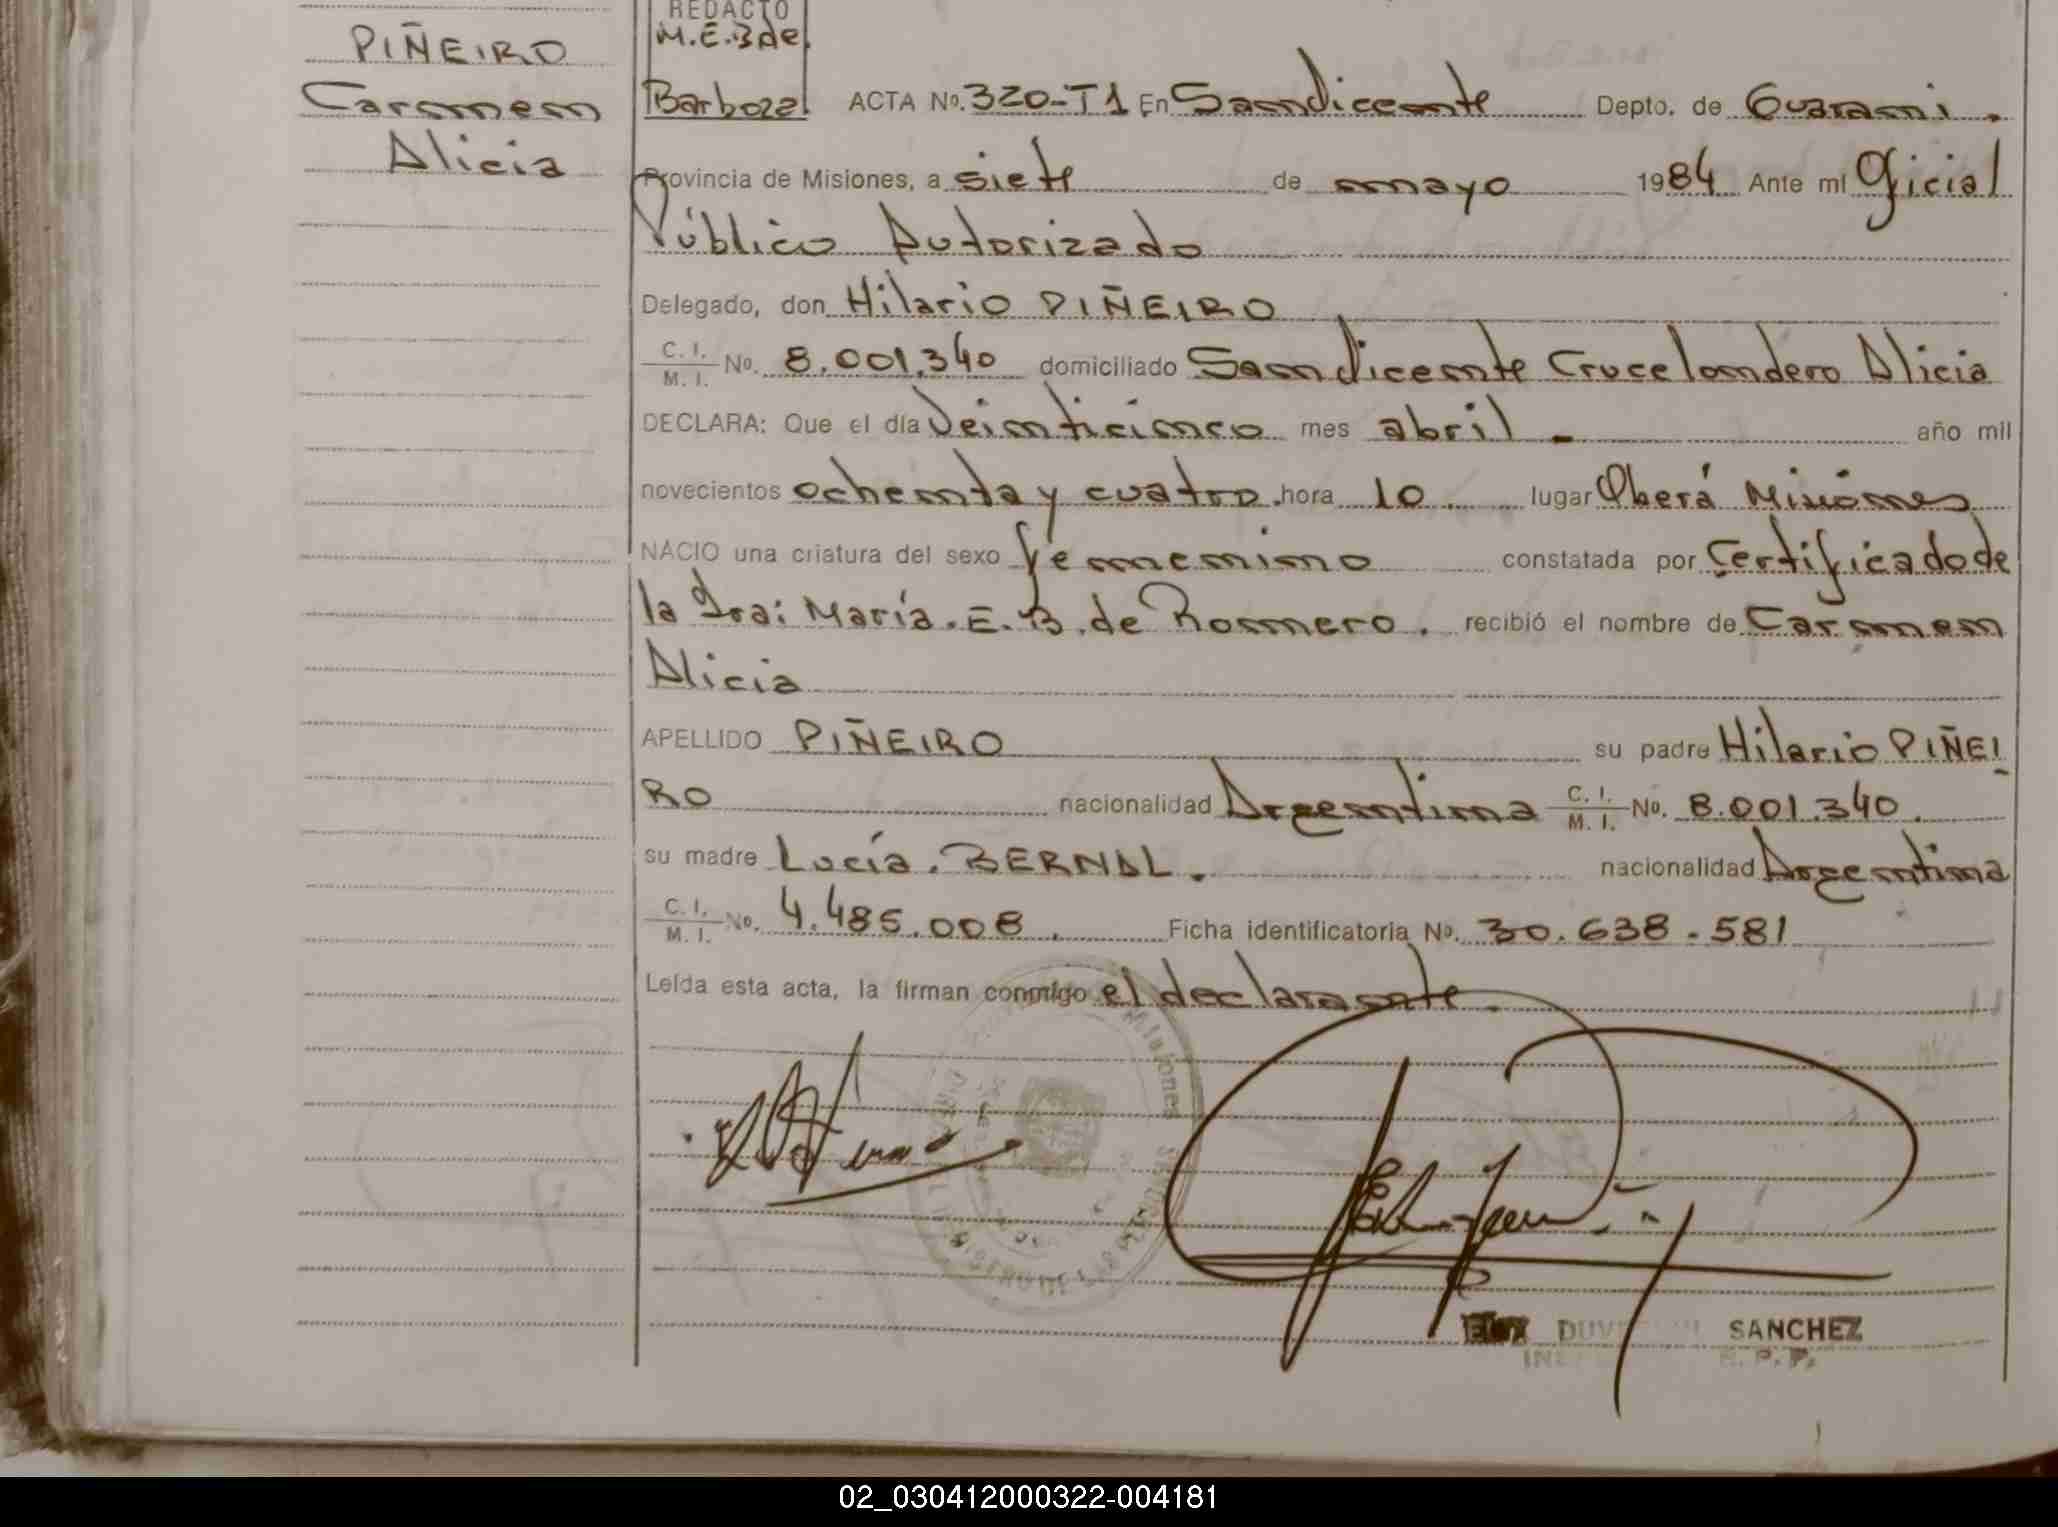 PIÑEIRO
Carmen
Alicia
REDACTO
M.E.B de
Barboza
ACTA No. 320-T1 En San Vicente Depto. de Guarani.
Provincia de Misiones, a siete de mayo 1984 Ante mI Oficial
Público Autorizado
Delegado, don Hilario PIÑEIRO
C. I. / M. I. No. 8.001.340 domiciliado San Vicente Crucelandero Alicia
DECLARA: Que el dIa Veinticinco mes abril - año mil
novecientos ochenta y cuatro. hora 10. lugar Oberá Misiones
NACIO una criatura del sexo femenino constatada por Certificado de
la Dra: María. E. B. de Romero. recibió el nombre de Carmen
Alicia
APELLIDO PIÑEIRO su padre Hilario PIÑEI
RO nacionalidad Argentina C. I. / M. I. No. 8.001.340.
su madre Lucía. BERNAL. nacionalidad Argentina
C. I. / M. I. No. 4.485.008. Ficha identificatoria No. 30.638.581
LeIda esta acta, la firman conmigo el declarante.
Misiones
SANCHEZ
02_030412000322-004181